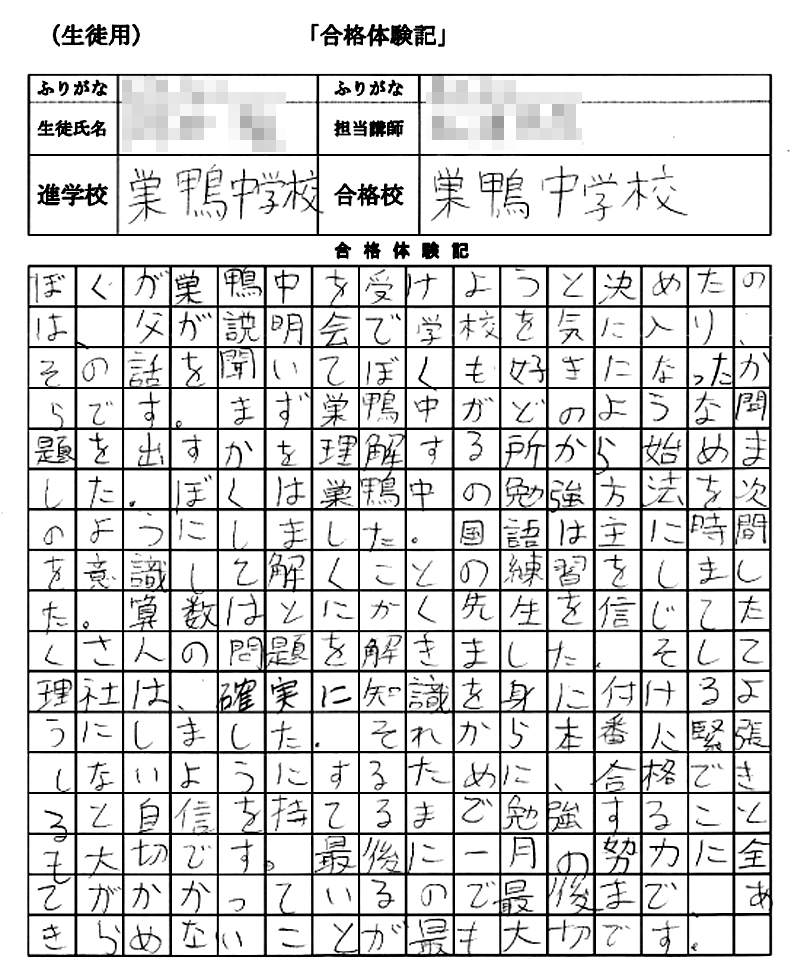 (生徒用) 「合格体験記」
ふりがな ふりがな
生徒氏名 担当講師
進学校 巣鴨中学校 合格校 巣鴨中学校
合格体験記
ぼくが巣鴨中を受けようと決めたの
は、父が説明会で学校を気に入り、
その話を聞いてぼくも好きになったか
らです。まず巣鴨中がどのような問
題を出すかを理解する所から始めま
した。ぼくは巣鴨中の勉強方法を次
のようにしました。国語は主に時間
を意識して解くことの練習をしまし
た。算数はとにかく先生を信じてた
くさんの問題を解きました。そして
理社は、確実に知識を身に付けるよ
うにしました。それから本番に緊張
しないようにするために、合格でき
ると自信を持てるまで勉強すること
も大切です。最後に一月の努力に全
てがかかっているので最後まで、あ
きらめないことが最も大切です。